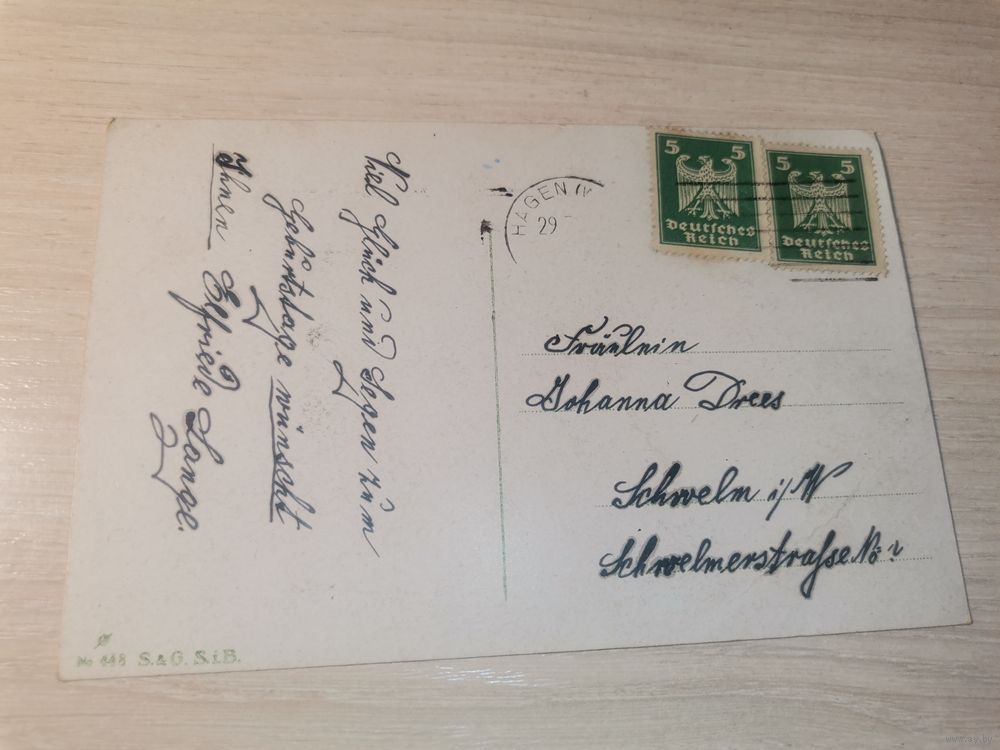 Viel Glück und Segen zum
Geburtstage wünscht
Ihnen Elfriede Lange.
HAGEN (W
29
5 5
Deutsches
Reich
5 5
Deutsches
Reich
Fräulein
Johanna Drees
Schwelm i/W
Schwelmerstraße No
No 448 S.&G. S.i.B.